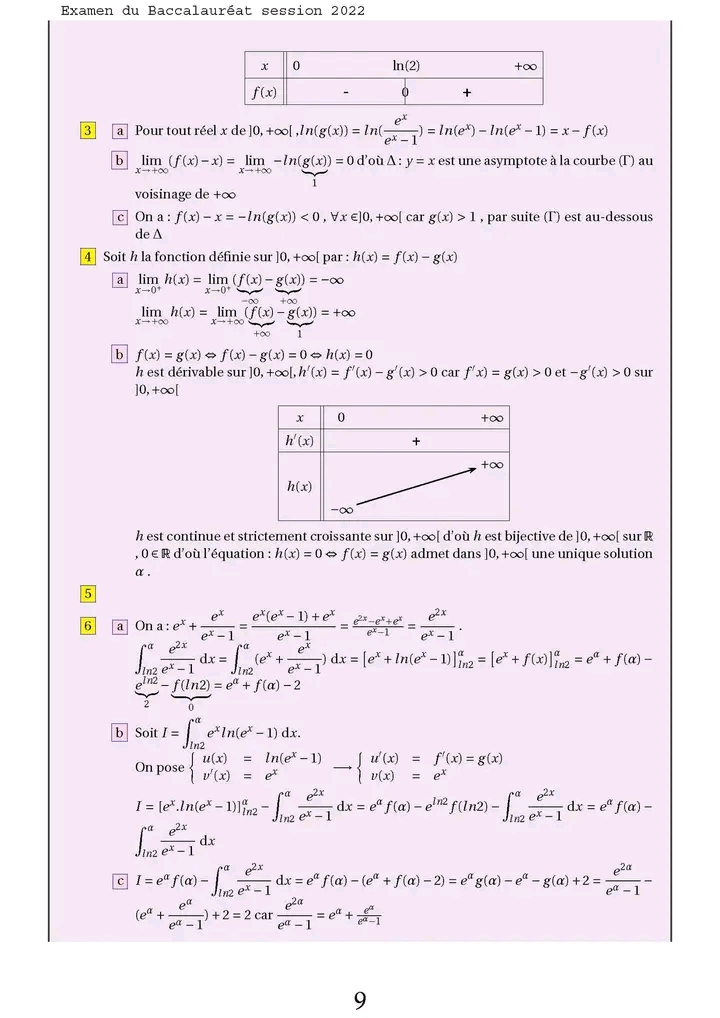 Examen du Baccalauréat session 2022
x 0 ln(2) +∞
f(x) - 0 +
3 a Pour tout réel x de ]0,+∞[ ,ln(g(x)) = ln(e^x/(e^x − 1)) = ln(e^x) − ln(e^x − 1) = x − f(x)
b lim_{x→+∞} (f(x) − x) = lim_{x→+∞} −ln(g(x)) = 0 d'où Δ : y = x est une asymptote à la courbe (Γ) au
1
voisinage de +∞
c On a : f(x) − x = −ln(g(x)) < 0 , ∀x ∈]0,+∞[ car g(x) > 1 , par suite (Γ) est au-dessous
de Δ
4 Soit h la fonction définie sur ]0,+∞[ par : h(x) = f(x) − g(x)
a lim_{x→0⁺} h(x) = lim_{x→0⁺} (f(x) − g(x)) = −∞
−∞ +∞
lim_{x→+∞} h(x) = lim_{x→+∞} (f(x) − g(x)) = +∞
+∞ 1
b f(x) = g(x) ⇔ f(x) − g(x) = 0 ⇔ h(x) = 0
h est dérivable sur ]0,+∞[, h′(x) = f′(x) − g′(x) > 0 car f′x) = g(x) > 0 et −g′(x) > 0 sur
]0,+∞[
x 0 +∞
h′(x) +
+∞
h(x)
−∞
h est continue et strictement croissante sur ]0,+∞[ d'où h est bijective de ]0,+∞[ sur ℝ
, 0 ∈ ℝ d'où l'équation : h(x) = 0 ⇔ f(x) = g(x) admet dans ]0,+∞[ une unique solution
α .
5
6 a On a : e^x + e^x/(e^x − 1) = (e^x(e^x − 1) + e^x)/(e^x − 1) = (e^{2x}−e^x+e^x)/(e^x−1) = e^{2x}/(e^x − 1) .
∫_{ln2}^{α} e^{2x}/(e^x − 1) dx = ∫_{ln2}^{α} (e^x + e^x/(e^x − 1)) dx = [e^x + ln(e^x − 1)]_{ln2}^{α} = [e^x + f(x)]_{ln2}^{α} = e^α + f(α) −
e^{ln2} − f(ln2) = e^α + f(α) − 2
2 0
b Soit I = ∫_{ln2}^{α} e^x ln(e^x − 1) dx.
On pose { u(x) = ln(e^x − 1) → { u′(x) = f′(x) = g(x)
v′(x) = e^x v(x) = e^x
I = [e^x.ln(e^x − 1)]_{ln2}^{α} − ∫_{ln2}^{α} e^{2x}/(e^x − 1) dx = e^α f(α) − e^{ln2} f(ln2) − ∫_{ln2}^{α} e^{2x}/(e^x − 1) dx = e^α f(α) −
∫_{ln2}^{α} e^{2x}/(e^x − 1) dx
c I = e^α f(α) − ∫_{ln2}^{α} e^{2x}/(e^x − 1) dx = e^α f(α) − (e^α + f(α) − 2) = e^α g(α) − e^α − g(α) + 2 = e^{2α}/(e^α − 1) −
(e^α + e^α/(e^α − 1)) + 2 = 2 car e^{2α}/(e^α − 1) = e^α + e^α/(e^α−1)
9